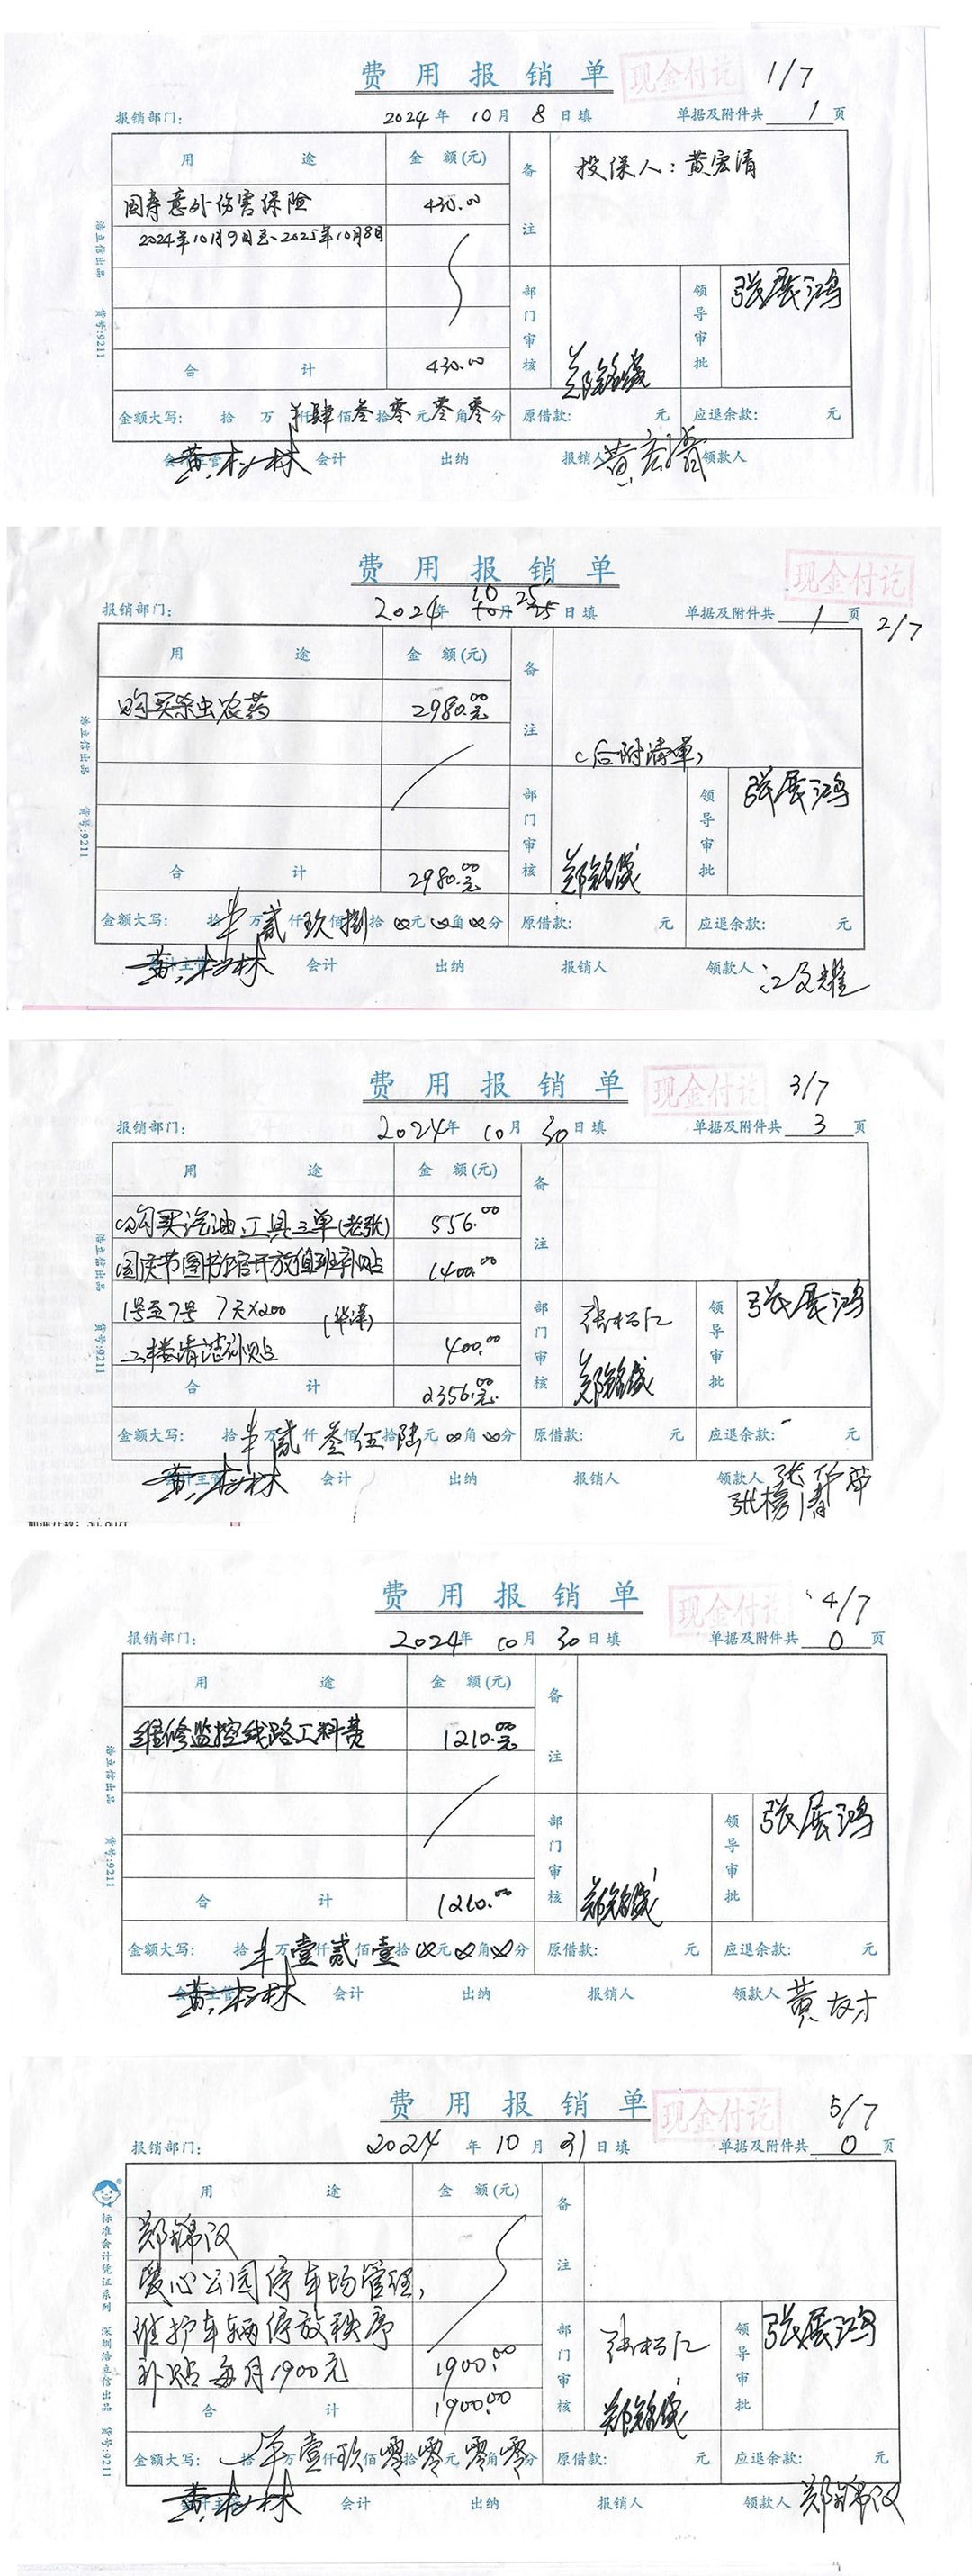 费 用 报 销 单
现金付讫
1/7
报销部门：
2024 年 10 月 8 日填
单据及附件共 1 页
用 途
金 额(元)
备注
投保人：黄宏清
国寿意外伤害保险
430.00
2024年10月9日至2025年10月8日
部门审核
领导审批
张展鸿
合 计
430.00
金额大写： 拾 万 仟 肆 佰 叁 拾 零 元 零 角 零 分
原借款： 元
应退余款： 元
会计主管
会计
出纳
报销人
黄宏清
领款人
浩立信出品 货号:9211
费 用 报 销 单
现金付讫
2/7
报销部门：
2024 年 10 月 25 日填
单据及附件共 1 页
用 途
金 额(元)
备注
购买杀虫农药
2980.00元
(后附清单)
部门审核
领导审批
张展鸿
合 计
2980.00元
金额大写： 拾 万 贰 仟 玖 佰 捌 拾 元 角 分
原借款： 元
应退余款： 元
会计主管
会计
出纳
报销人
领款人
浩立信出品 货号:9211
费 用 报 销 单
现金付讫
3/7
报销部门：
2024 年 10 月 30 日填
单据及附件共 3 页
用 途
金 额(元)
备注
购买汽油、工具三单(老张)
556.00
国庆节图书馆开放值班补贴
1400.00
1号至7号 7天×200
二楼清洁补贴
400.00
部门审核
领导审批
张展鸿
合 计
2356.00元
金额大写： 拾 万 贰 仟 叁 佰 伍 拾 陆 元 角 分
原借款： 元
应退余款： 元
会计主管
会计
出纳
报销人
领款人
浩立信出品 货号:9211
费 用 报 销 单
现金付讫
4/7
报销部门：
2024 年 10 月 30 日填
单据及附件共 0 页
用 途
金 额(元)
备注
维修监控线路工料费
1210.00元
部门审核
领导审批
张展鸿
合 计
1210.00
金额大写： 拾 万 壹 仟 贰 佰 壹 拾 元 角 分
原借款： 元
应退余款： 元
会计主管
会计
出纳
报销人
领款人
浩立信出品 货号:9211
费 用 报 销 单
现金付讫
5/7
报销部门：
2024 年 10 月 31 日填
单据及附件共 0 页
用 途
金 额(元)
备注
郑锦汉
爱心公园停车场管理，
维护车辆停放秩序
补贴 每月1900元
1900.00
部门审核
领导审批
张展鸿
合 计
1900.00
金额大写： 拾 万 壹 仟 玖 佰 零 拾 零 元 零 角 零 分
原借款： 元
应退余款： 元
会计主管
会计
出纳
报销人
领款人
郑锦汉
标准会计凭证系列 深圳浩立信出品 货号:9211